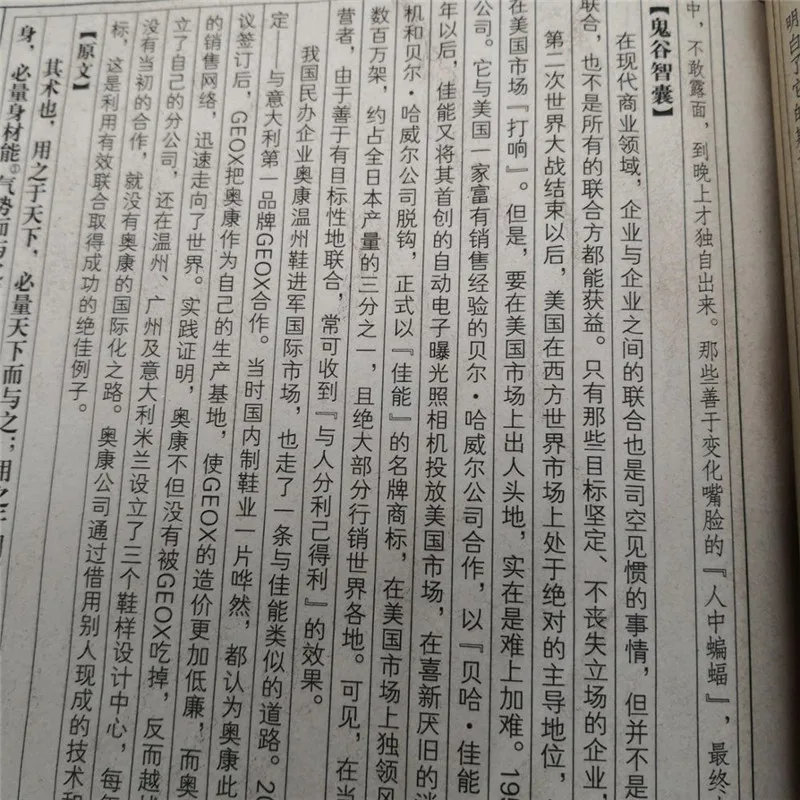 明白了它的
中，不敢露面，到晚上才独自出来。那些善于变化嘴脸的『人中蝙蝠』，最终
【鬼谷智囊】
在现代商业领域，企业与企业之间的联合也是司空见惯的事情，但并不是
联合，也不是所有的联合方都能获益。只有那些目标坚定、不丧失立场的企业，
第二次世界大战结束以后，美国在西方世界市场上处于绝对的主导地位，
在美国市场『打响』。但是，要在美国市场上出人头地，实在是难上加难。19
公司。它与美国一家富有销售经验的贝尔·哈威尔公司合作，以『贝哈·佳能
年以后，佳能又将其首创的自动电子曝光照相机投放美国市场，在喜新厌旧的
机和贝尔·哈威尔公司脱钩，正式以『佳能』的名牌商标，在美国市场上独领风
数百万架，约占全日本产量的三分之一，且绝大部分行销世界各地。可见，在当
营者，由于善于有目标性地联合，常可收到『与人分利己得利』的效果。
我国民办企业奥康温州鞋进军国际市场，也走了一条与佳能类似的道路。20
定——与意大利第一品牌GEOX合作。当时国内制鞋业一片哗然，都认为奥康此
议签订后，GEOX把奥康作为自己的生产基地，使GEOX的造价更加低廉，而奥
的销售网络，迅速走向了世界。实践证明，奥康不但没有被GEOX吃掉，反而越
立了自己的分公司，还在温州、广州及意大利米兰设立了三个鞋样设计中心，每
没有当初的合作，就没有奥康的国际化之路。奥康公司通过借用别人现成的技术和
标，这是利用有效联合取得成功的绝佳例子。
【原文】
其术也，用之于天下，必量天下而与之；用之于
身，必量身材能①气势而与之